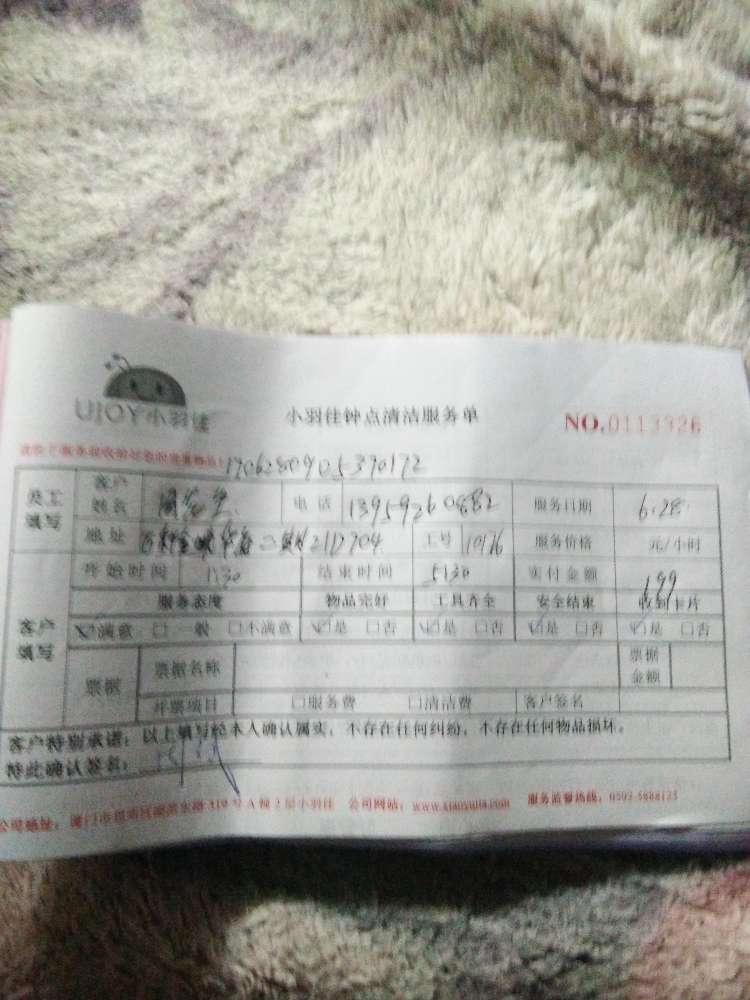 UJOY小羽佳
小羽佳钟点清洁服务单
NO.0113326
1706280905370172
员工填写 客户姓名 电话 13959260882 服务日期 6.28
地址 二期21D704 工号 10176 服务价格 元/小时
开始时间 1:30 结束时间 5:30 实付金额 199
客户填写 服务态度 物品完好 工具齐全 安全结束 收到卡片
☑满意 □一般 □不满意 ☑是 □否 ☑是 □否 ☑是 □否 ☑是 □否
票据 票据名称 票据金额
开票项目 □服务费 □清洁费 客户签名
客户特别承诺：以上填写经本人确认属实，不存在任何纠纷，不存在任何物品损坏。
特此确认签名：
公司地址：厦门市思明区湖滨东路319号A幢2层小羽佳 公司网站：www.xiaoyujia.com 服务监督热线：0592-5888125